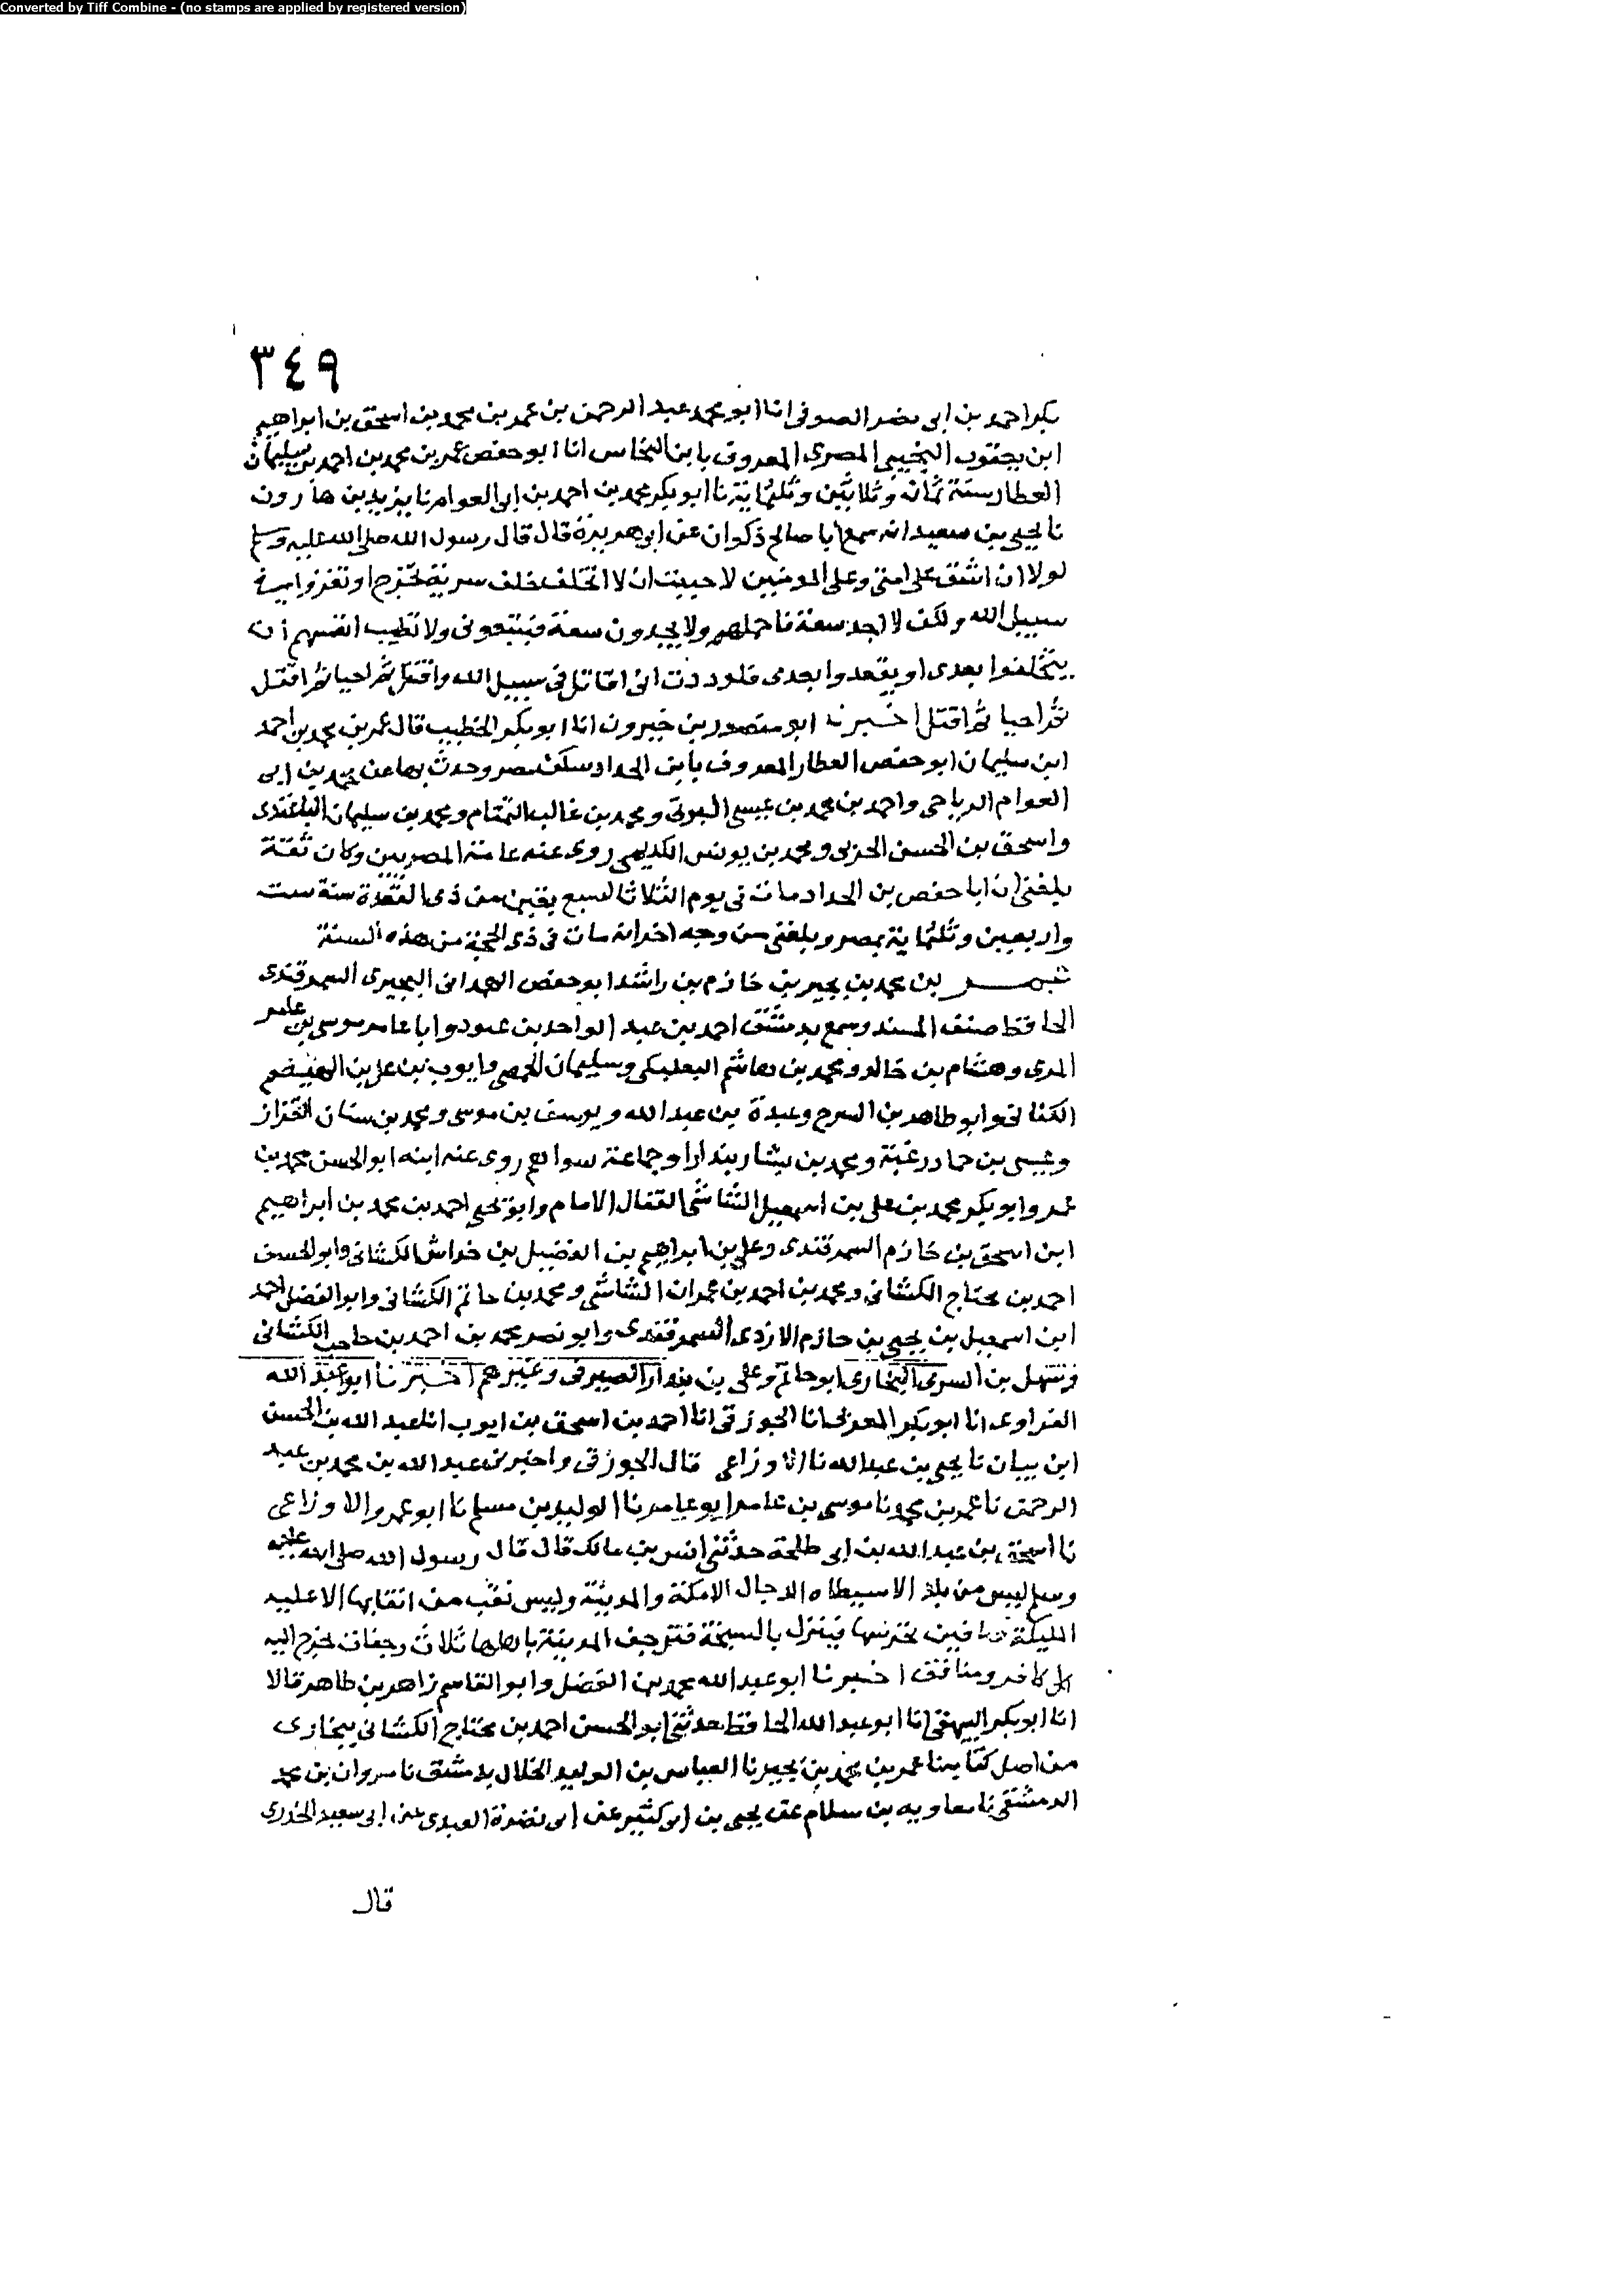 Converted by Tiff Combine - (no stamps are applied by registered version)
٣٤٩
بكر احمد بن ابى نصر الصوفى انا ابو محمد عبد الرحمن بن عمر بن محمد بن اسحق بن ابراهيم
ابن يعقوب التجيبى المصرى المعروف بابن النحاس انا ابو حفص عمر بن محمد بن احمد بن سليمان
العطار سنة ثمان وثلاثين وثلثماية نا ابو بكر محمد بن احمد بن ابى العوام نا يزيد بن هارون
نا يحيى بن سعيد انه سمع ابا صالح ذكوان عن ابى هريرة قال قال رسول الله صلى الله عليه وسلم
لولا ان اشق على امتى وعلى المومنين لاحببت ان لا اتخلف خلف سرية تخرج او تغزوا فى
سبيل الله ولكن لا اجد سعة فاحملهم ولا يجدون سعة فيتبعونى ولا تطيب انفسهم ان
يتخلفوا بعدى او يقعدوا بعدى فلوددت انى اقاتل فى سبيل الله واقتل ثم احيا ثم اقتل
ثم احيا ثم اقتل اخبرنا ابو منصور بن خيرون انا ابو بكر الخطيب قال عمر بن محمد بن احمد
ابن سليمان ابو حفص العطار المعروف بابن الحداد سكن مصر وحدث بها عن محمد بن ابى
العوام الرياحى واحمد بن محمد بن عيسى البرتى ومحمد بن غالب التمتام ومحمد بن سليمان الباغندى
واسحق بن الحسن الحربى ومحمد بن يونس الكديمى روى عنه عامة المصريين وكان ثقة
بلغنى ان ابا حفص بن الحداد مات فى يوم الثلاثا لسبع بقين من ذى القعدة سنة ست
واربعين وثلثماية بمصر وبلغنى من وجه اخر انه مات فى ذى الحجة من هذه السنة
عمر بن محمد بن بجير بن خازم بن راشد ابو حفص الهمدانى البجيرى السمرقندى
الحافظ صنف المسند وسمع بدمشق احمد بن عبد الواحد بن عبود وابا عامر موسى بن عامر
المرى وهشام بن خالد ومحمد بن هاشم البعلبكى وسليمان الحمصى وايوب بن على بن الهيضم
الكنانى وابو طاهر بن السرح وعبدة بن عبد الله ويوسف بن موسى ومحمد بن سنان القزاز
وعيسى بن حماد زغبة ومحمد بن بشار بندارا وجماعة سواهم روى عنه ابنه ابو الحسن محمد بن
عمر وابو بكر محمد بن على بن اسمعيل الشاشى القفال الامام وابو يحيى احمد بن محمد بن ابراهيم
ابن اسحق بن خازم السمرقندى وعلى بن ابراهيم بن الفضيل بن خداش الكشانى وابو الحسن
احمد بن محتاج الكشانى ومحمد بن احمد بن عمران الشاشى ومحمد بن حاتم الكشانى وابو الفضل احمد
ابن اسمعيل بن يحيى بن حازم الازدى السمرقندى وابو نصر محمد بن احمد بن حاجب الكشانى
وسهل بن السرى البخارى ابو حاتم وعلى بن بندار الصيرفى وغيرهم اخبرنا ابو عبد الله
الفراوى انا ابو بكر المغربى انا الجوزقى انا احمد بن اسحق بن ايوب انا عبد الله بن الحسن
ابن بيان نا يحيى بن عبد الله نا الاوزاعى قال الجوزقى واخبرنى عبد الله بن محمد بن عبد
الرحمن نا عمر بن محمد نا موسى بن عامر ابو عامر نا الوليد بن مسلم نا ابو عمرو الاوزاعى
نا اسحق بن عبد الله بن ابى طلحة حدثنى انس بن مالك قال قال رسول الله صلى الله عليه
وسلم ليس من بلد الا سيطاه الدجال الا مكة والمدينة وليس نقب من انقابها الا عليه
المليكة صافين تحرسها فينزل بالسبخة فترجف المدينة باهلها ثلاث رجفات يخرج اليه
كل كافر ومنافق اخبرنا ابو عبد الله محمد بن الفضل وابو القاسم زاهر بن طاهر قالا
انا ابو بكر البيهقى انا ابو عبد الله الحافظ حدثنى ابو الحسن احمد بن محتاج الكشانى ببخارى
من اصل كتابه نا عمر بن محمد بن بجير نا العباس بن الوليد الخلال بدمشق نا مروان بن محمد
الدمشقى نا معاويه بن سلام عن يحيى بن ابى كثير عن ابى نضرة العبدى عن ابى سعيد الخدرى
قال